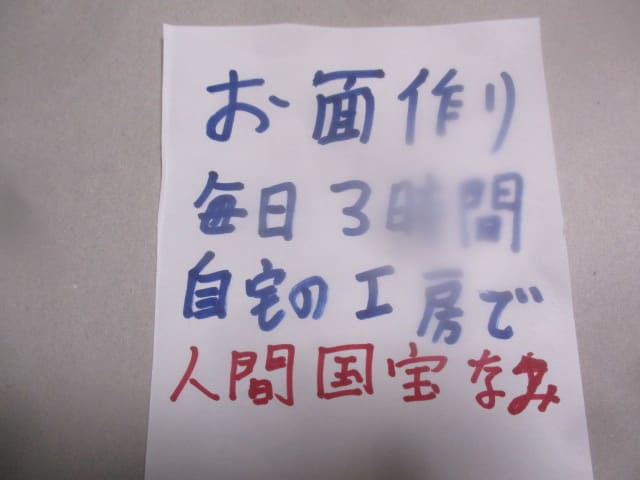 お面作り
毎日3時間
自宅の工房で
人間国宝なみ